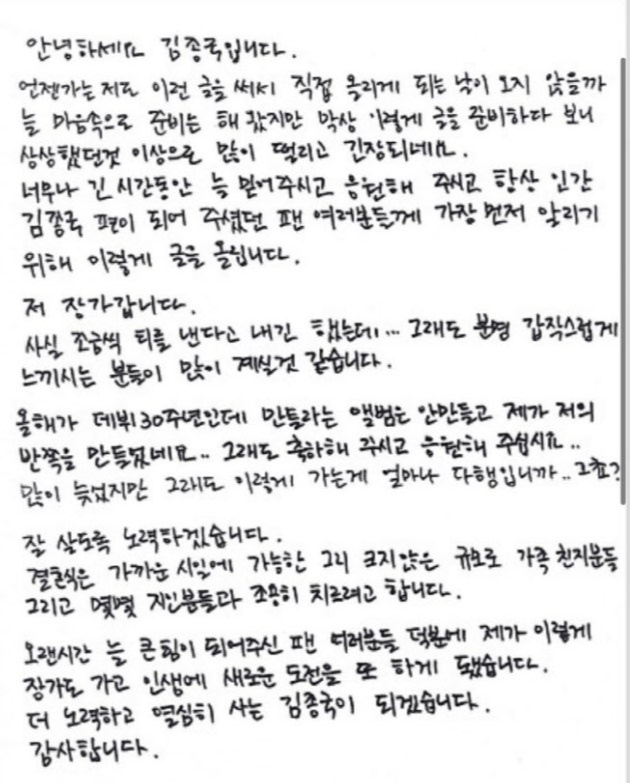 안녕하세요 김종국입니다.
언젠가는 저도 이런 글을 써서 직접 올리게 되는 날이 오지 않을까
늘 마음속으로 준비는 해 왔지만 막상 이렇게 글을 준비하다 보니
상상했던것 이상으로 많이 떨리고 긴장되네요.
너무나 긴 시간동안 늘 믿어주시고 응원해 주시고 항상 인간
김종국 편이 되어 주셨던 팬 여러분들께 가장 먼저 알리기
위해 이렇게 글을 올립니다.
저 장가갑니다.
사실 조금씩 티를 낸다고 내긴 했는데... 그래도 분명 갑작스럽게
느끼시는 분들이 많이 계실것 같습니다.
올해가 데뷔30주년인데 만들라는 앨범은 안만들고 제가 저의
반쪽을 만들었네요.. 그래도 축하해 주시고 응원해 주십시요..
많이 늦었지만 그래도 이렇게 가는게 얼마나 다행입니까.. 그쵸?
잘 살도록 노력하겠습니다.
결혼식은 가까운 시일에 가능한 그리 크지않은 규모로 가족 친지분들
그리고 몇몇 지인분들과 조용히 치르려고 합니다.
오랜시간 늘 큰 힘이 되어주신 팬 여러분들 덕분에 제가 이렇게
장가도 가고 인생에 새로운 도전을 또 하게 됐습니다.
더 노력하고 열심히 사는 김종국이 되겠습니다.
감사합니다.